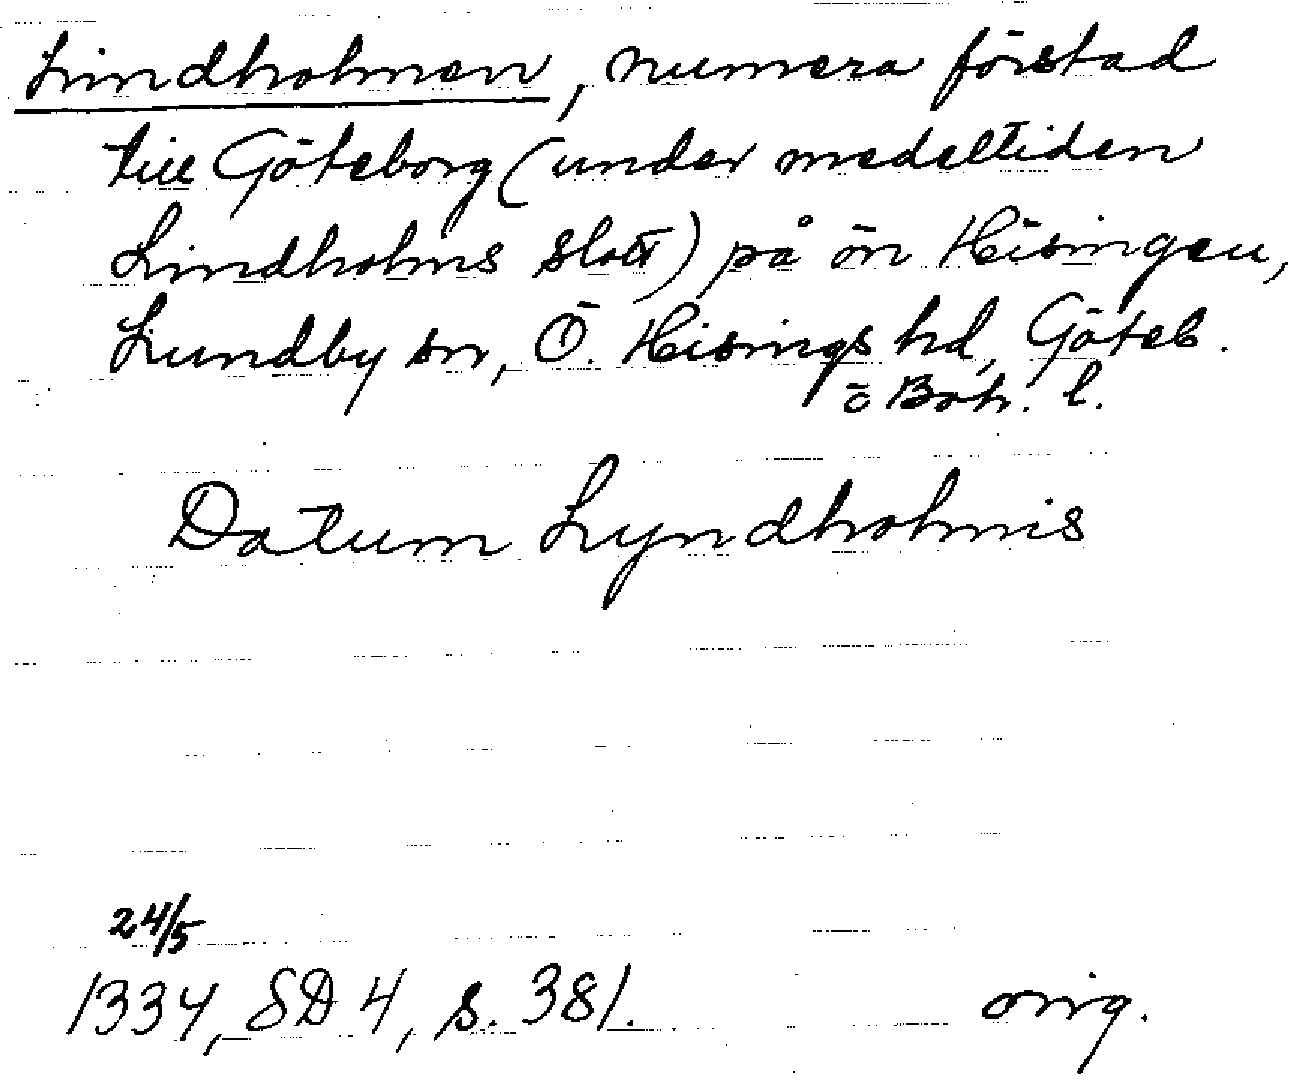 Lindholmen, numera förstad
till Göteborg (under medeltiden
Lindholms slott) på ön Hisingen,
Lundby sn, Ö. Hisings hd, Göteb.
o Boh. l.
Datum Lyndholmis
24/5
1334, SD 4, s. 381. orig.